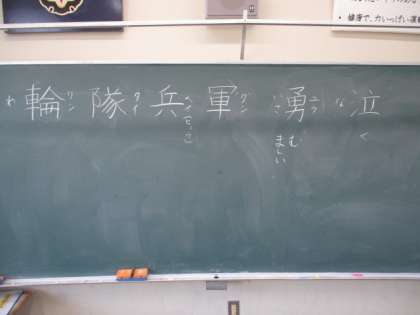 ・健康で、力いっぱい
泣 な く
勇 ユウ いさ む ましい
軍 グン
兵
隊 タイ
輪 リン わ